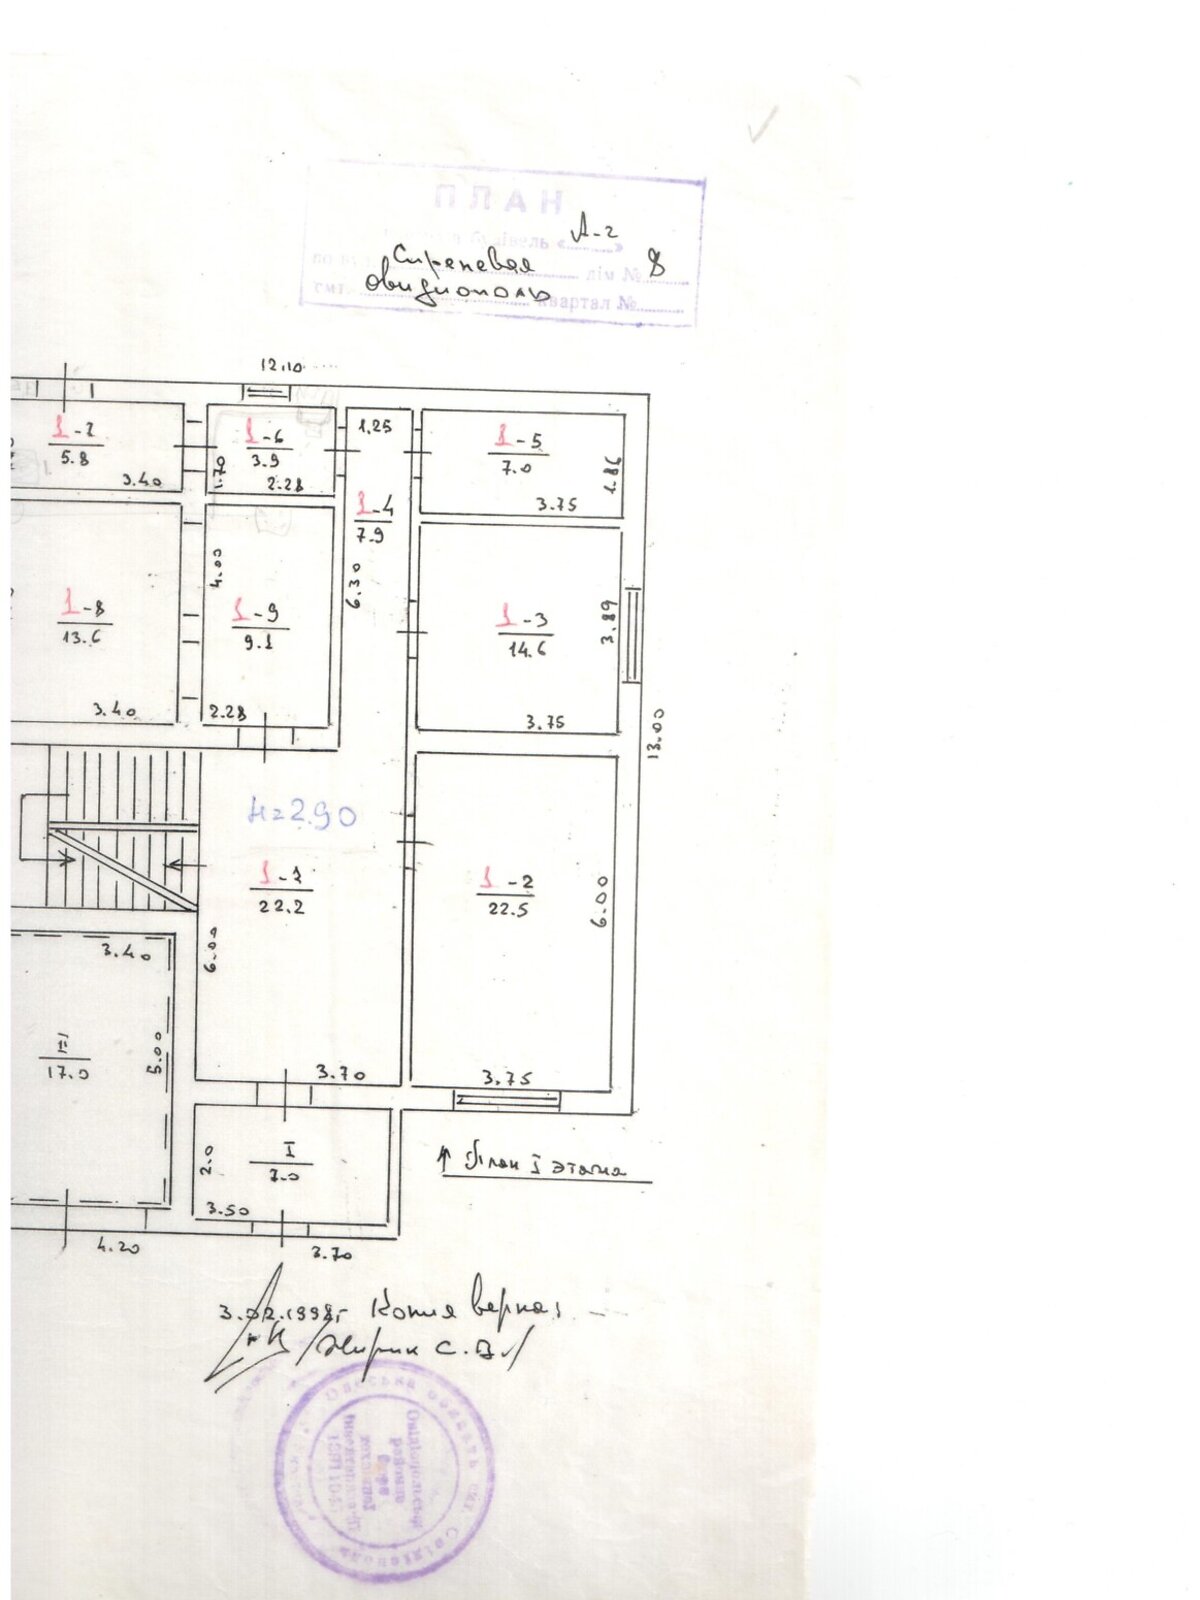 ПЛАН
будівель «А-2»
Сиреневая дім № 8
смт. Овидиополь квартал №
12.10
1-7
5.8
3.40
1-6
3.9
1.70
2.28
1.25
1-5
7.0
1.86
3.75
1-4
7.9
6.30
1-8
13.6
3.40
4.00
1-9
9.1
2.28
1-3
14.6
3.89
3.75
13.00
H=2.90
1-1
22.2
6.00
3.70
1-2
22.5
6.00
3.75
3.40
17.0
5.00
I
7.0
2.0
3.50
4.20
3.70
План I этажа
3.02.1998г Копия верна: